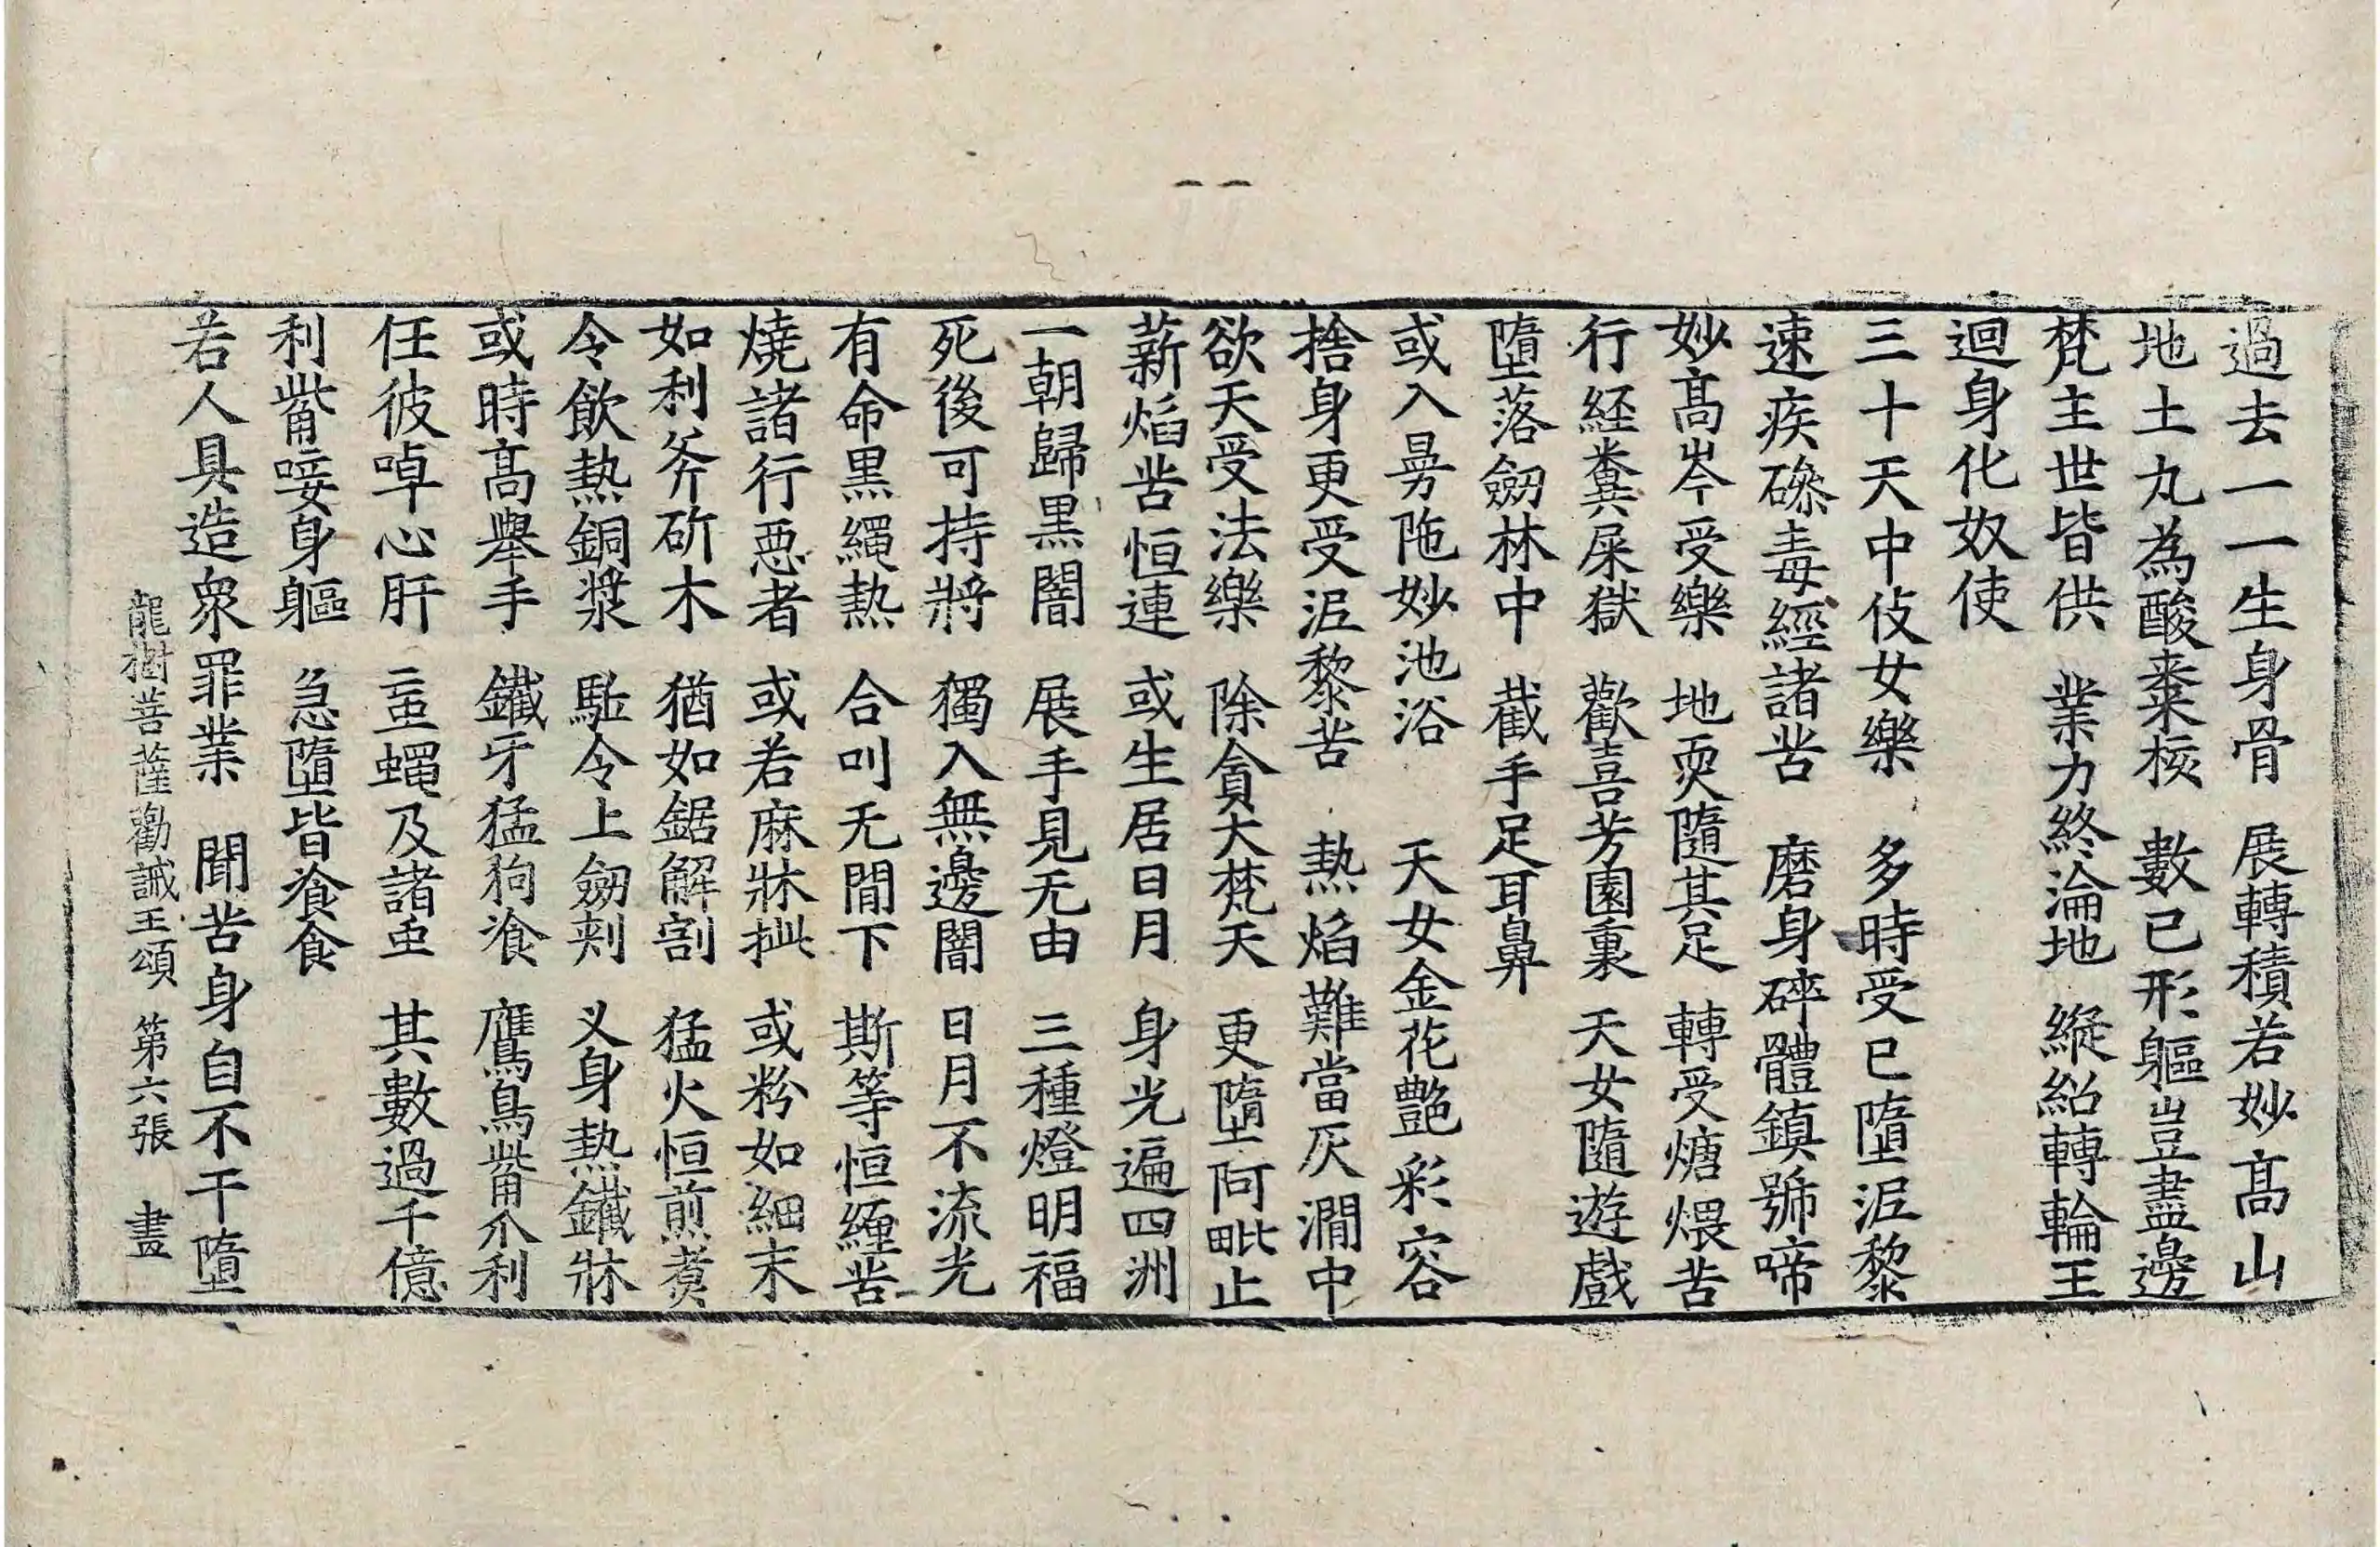 過去一一生身骨 展轉積若妙高山
地土丸為酸棗核 數已形軀豈盡邊
梵主世皆供 業力終淪地 縱紹轉輪王
迴身化奴使
三十天中伎女樂 多時受已墮泥黎
速疾磣毒經諸苦 磨身碎體鎮號啼
妙高岑受樂 地耎隨其足 轉受煻煨苦
行經糞屎獄 歡喜芳園裏 天女隨遊戲
墮落劒林中 截手足耳鼻
或入曼陁妙池浴 天女金花艷彩容
捨身更受泥黎苦 熱焰難當灰澗中
欲天受法樂 除貪大梵天 更墮阿毗止
薪焰苦恒連 或生居日月 身光遍四洲
一朝歸黑闇 展手見无由 三種燈明福
死後可持將 獨入無邊闇 日月不流光
有命黑繩熱 合叫无間下 斯等恒纏苦
燒諸行惡者 或若麻牀㧗 或粉如細末
如利斧斫木 猶如鋸解割 猛火恒煎煑
令飲熱銅漿 駈令上劒刾 叉身熱鐵牀
或時高舉手 鐵牙猛狗飡 鷹鳥觜爪利
任彼啅心肝 䖝蠅及諸䖝 其數過千億
利觜唼身軀 急墮皆飡食
若人具造衆罪業 聞苦身自不干墮
龍樹菩薩勸誡王頌 第六張 畫